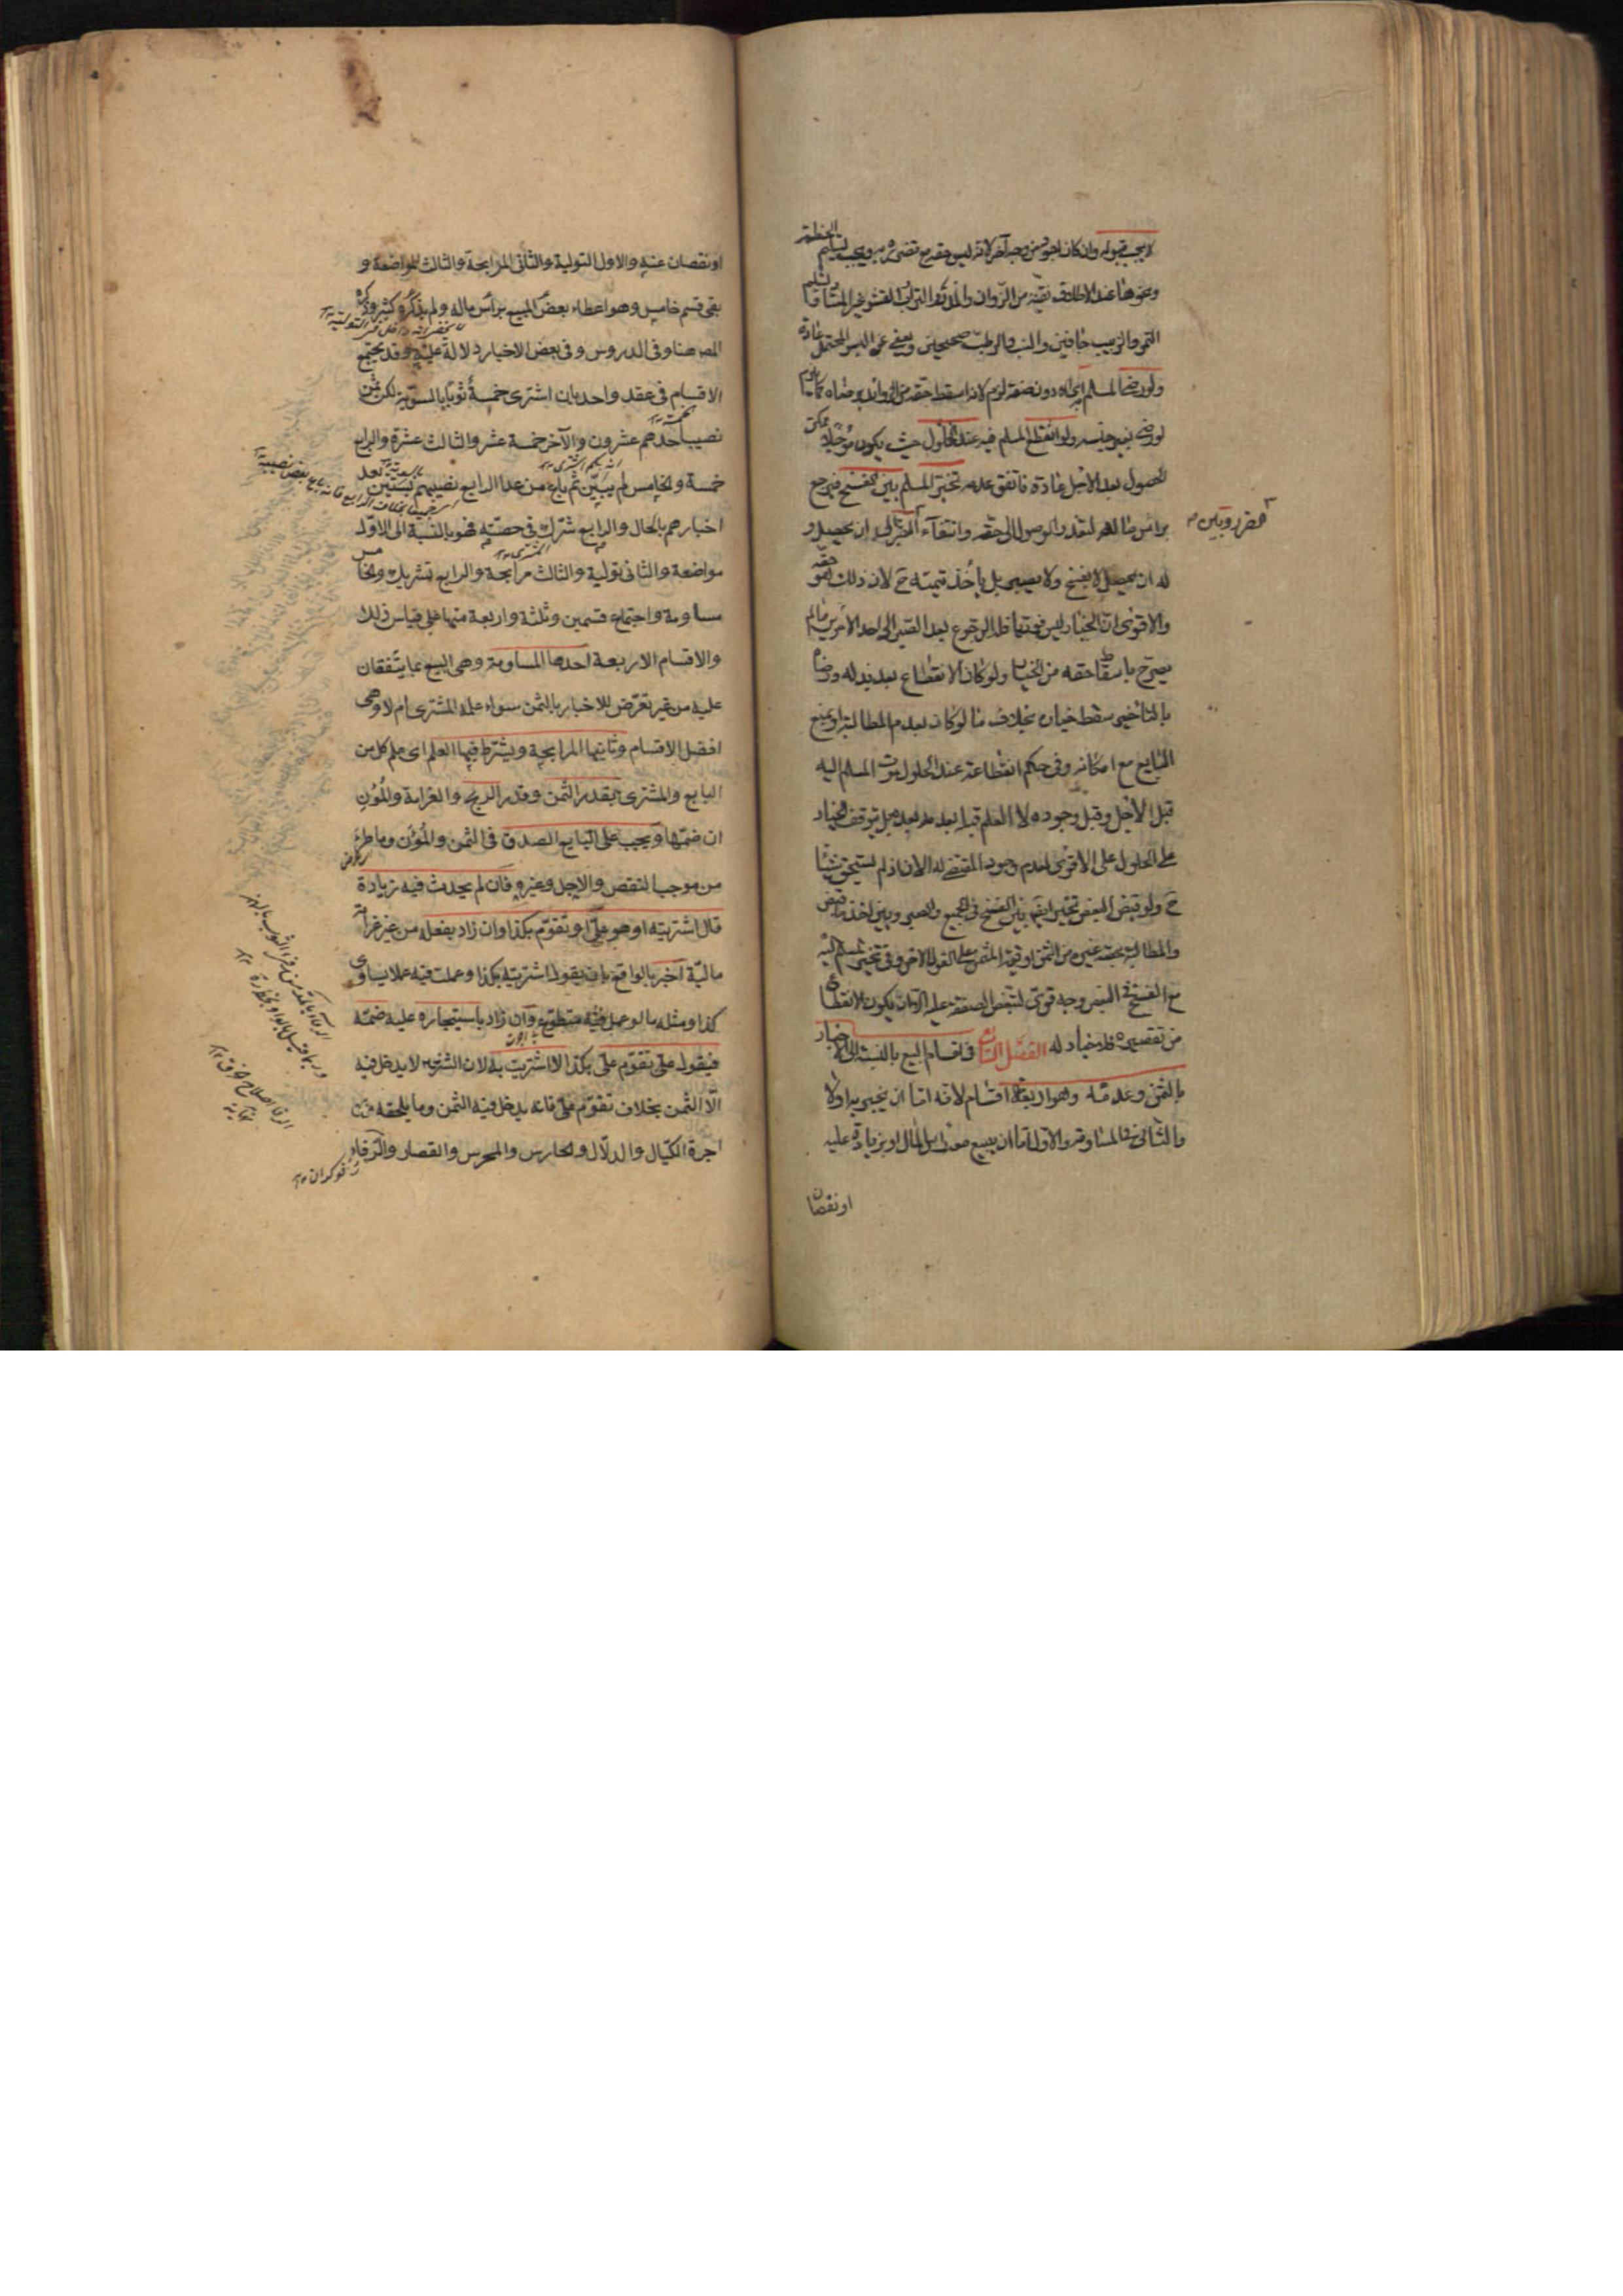 لا يجب قبوله وان كان اجود من وجه آخر لانه ليس حقه مع تضرره به ويجب تسليم الحنطة
ونحوها عند الاطلاق نقية من الزوان والمدر والتراب والقشر غير المعتاد وتسليم
التمر والزبيب جافين والعنب والرطب صحيحين ويعفى عن اليسير المحتمل عادة
ولو رضى المسلم به اى دون صفته لزم لانه اسقط حقه من الزوائد برضاه كما يلزم
لو رضى بغير جنسه ولو انقطع المسلم فيه عند الحلول حيث يكون مؤجلا ممكن
الحصول بعد الاجل عادة فاتفق عدمه تخير المسلم بين الفسخ فيرجع
براس ماله لتعذر الوصول الى حقه وانتفاء الضرر وبين الصبر الى ان يحصل و
له ان لا يفسخ ولا يصبر بل يأخذ قيمته ح لان ذلك هو حقه
والاقوى ان الخيار ليس فوريا فله الرجوع بعد الصبر الى احد الامرين ما لم
يصرح باسقاط حقه من الخيار ولو كان الانقطاع بعد بذله له ورضاه
بالتأخير سقط خياره بخلاف ما لو كان بعدم المطالبة او بمنع
البايع مع امكانه وفى حكم انقطاعه عند الحلول موت المسلم اليه
قبل الاجل وقبل وجوده لا العلم قبله بعدمه بعده بل يتوقف الخيار
على الحلول على الاقوى لعدم وجود المقتضى له الان اذ لم يستحق شيئا
ح ولو قبض البعض تخير ايضا بين الفسخ فى الجميع والصبر وبين اخذ ما قبض
والمطالبة بحصة غيره من الثمن او قيمة المثمن على القول الاخر وفى تخير المسلم اليه
مع الفسخ فى البعض وجه قوى لتبعض الصفقة عليه الا ان يكون الانقطاع
من تقصيره فلا خيار له الفصل التاسع فى اقسام البيع بالنسبة الى الاخبار
بالثمن وعدمه وهو اربعة اقسام لانه اما ان يخبر به او لا
والثانى المساومة والاول اما ان يبيع معه براس المال او بزيادة عليه
او نقصان
او نقصان عنه والاول التولية والثانى المرابحة والثالث المواضعة و
بقى قسم خامس وهو اعطاء بعض المبيع برأس ماله ولم يذكره كثير وذكره
المصـ هنا وفى الدروس وفى بعض الاخبار دلالة عليه وقد يجتمع
الاقسام فى عقد واحد بان اشترى خمسة ثوبا بالسوية لكن ثمن
نصيب احدهم عشرون والآخر خمسة عشر والثالث عشرة والرابع
خمسة والخامس لم يبين ثم باع من عدا الرابع نصيبهم بستين بعد
اخبارهم بالحال والرابع شرك فى حصته فهو بالنسبة الى الاول
مواضعة والثانى تولية والثالث مرابحة والرابع تشريك والخامس
مساومة واجتماع قسمين وثلثة واربعة منها على قياس ذلك
والاقسام الاربعة احدها المساومة وهى البيع بما يتفقان
عليه من غير تعرض للاخبار بالثمن سواء علمه المشترى ام لا وهى
افضل الاقسام وثانيها المرابحة ويشترط فيها العلم اى علم كل من
البايع والمشترى بقدر الثمن وقدر الربح والغرامة والمؤن
ان ضمها ويجب على البايع الصدق فى الثمن والمؤن وما طرء
من موجب النقص والاجل وغيره فان لم يحدث فيه زيادة
قال اشتريته او هو علىّ او تقوّم بكذا وان زاد بفعله من غير غرامة
مالية اخبر بالواقع بان يقول اشتريته بكذا وعملت فيه عملا يساوى
كذا ومثله ما لو عمل فيه متطوع وان زاد باستيجاره عليه ضمه
فيقول علىّ تقوّم علىّ بكذا لا اشتريت به لان الشراء لا يدخل فيه
الا الثمن بخلاف تقوم علىّ فانه يدخل فيه الثمن وما يلحقه من
اجرة الكيال والدلال والحارس والمحرس والقصار والرفاء
رفوكران